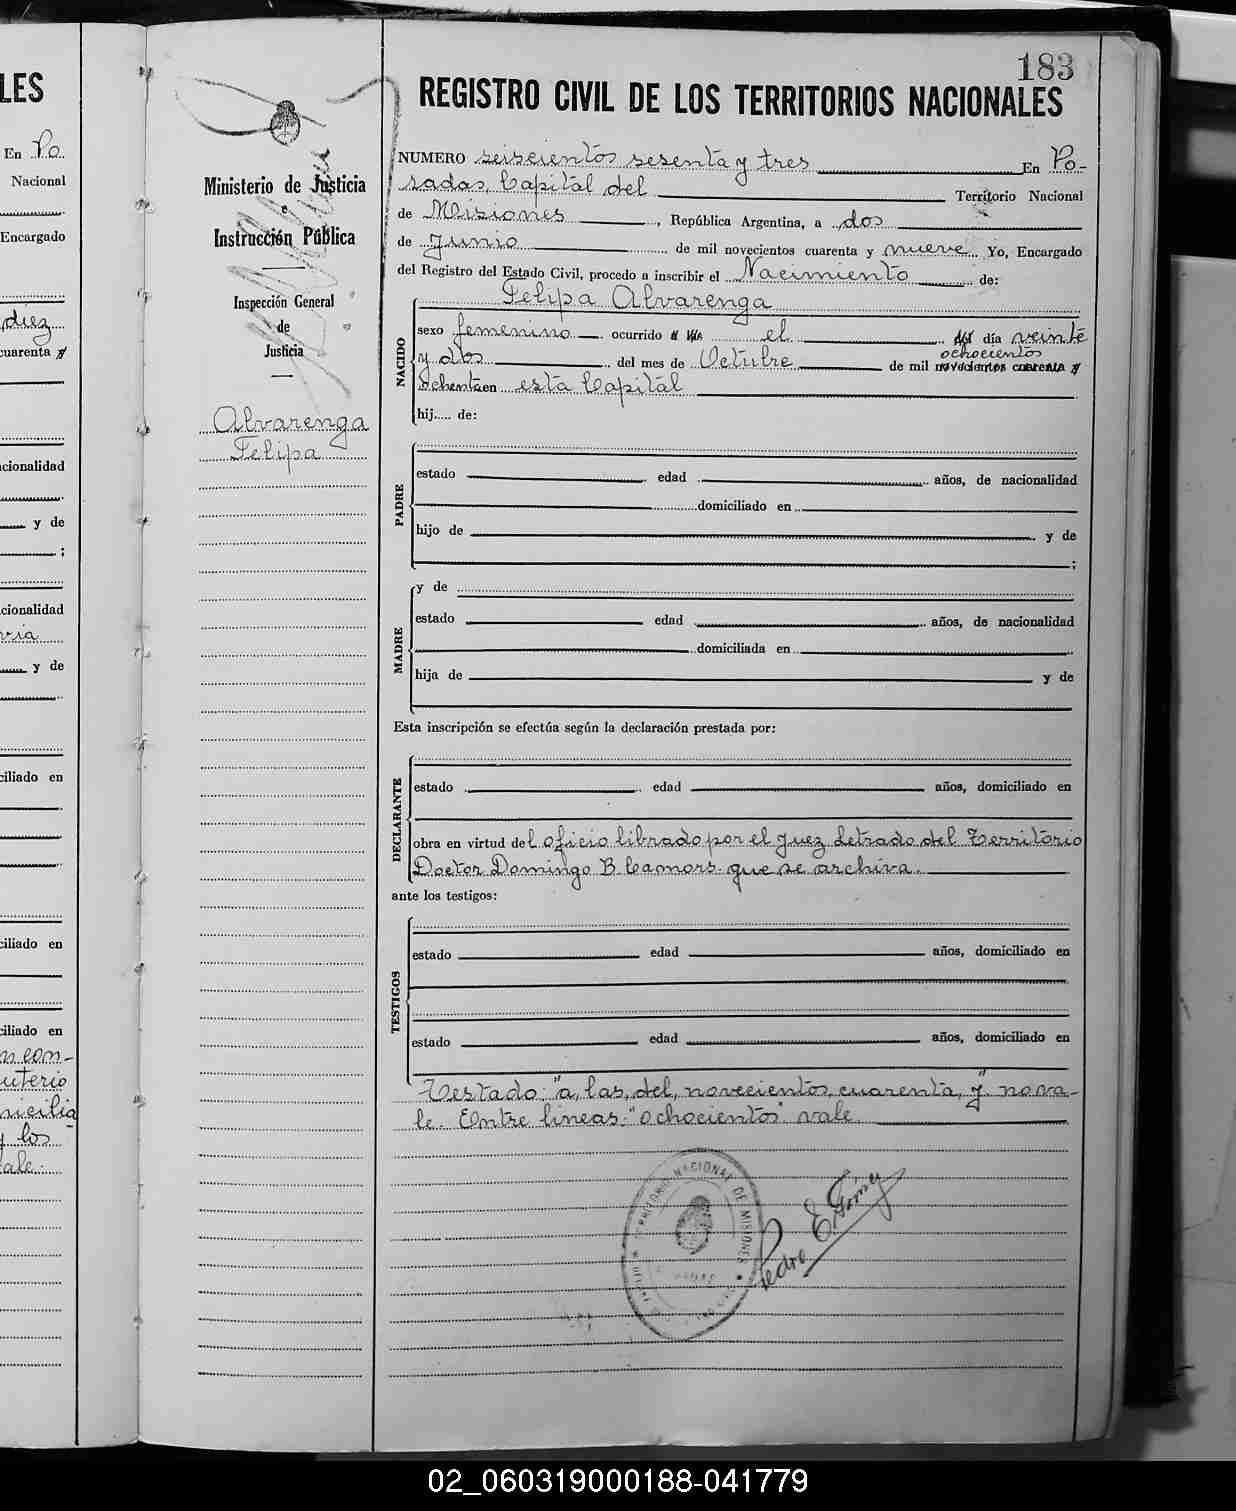 183
REGISTRO CIVIL DE LOS TERRITORIOS NACIONALES
Ministerio de Justicia
e
Instrucción Pública
Inspección General
de
Justicia
Alvarenga
Felipa
NUMERO seiscientos sesenta y tres En Po-
sadas, Capital del Territorio Nacional
de Misiones, República Argentina, a dos
de Junio de mil novecientos cuarenta y nueve. Yo, Encargado
del Registro del Estado Civil, procedo a inscribir el Nacimiento de:
Felipa Alvarenga
NACIDO
sexo femenino ocurrido a las el del día veinte
y dos del mes de Octubre de mil novecientos cuarenta y
ochocientos
ochenta en esta Capital
hij.... de:
PADRE
estado edad años, de nacionalidad
domiciliado en
hijo de y de
;
MADRE
y de
estado edad años, de nacionalidad
domiciliada en
hija de y de
Esta inscripción se efectúa según la declaración prestada por:
DECLARANTE
estado edad años, domiciliado en
obra en virtud del oficio librado por el Juez Letrado del Territorio
Doctor Domingo B. Camors. que se archiva.
ante los testigos:
TESTIGOS
estado edad años, domiciliado en
estado edad años, domiciliado en
Testado: "a, las, del, novecientos, cuarenta, y" no va-
le. Entre lineas: "ochocientos" vale.
TERRITORIO NACIONAL DE MISIONES
Pedro E. Gómez
LES
En Po
Nacional
Encargado
diez
cuarenta y
cionalidad
y de
;
cionalidad
y de
ciliado en
ciliado en
ciliado en
con-
los
ale.
02_060319000188-041779